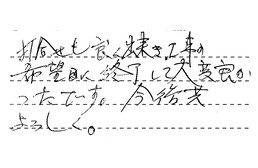 打合せも良く出来き、工事の
希望日に終了して大変良か
ったです。今後共
よろしく。